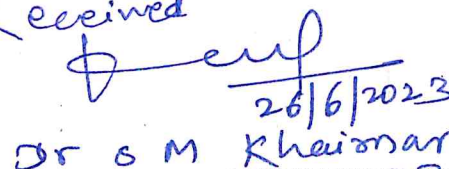 eceived
26/6/2023
Dr S M Khairnar